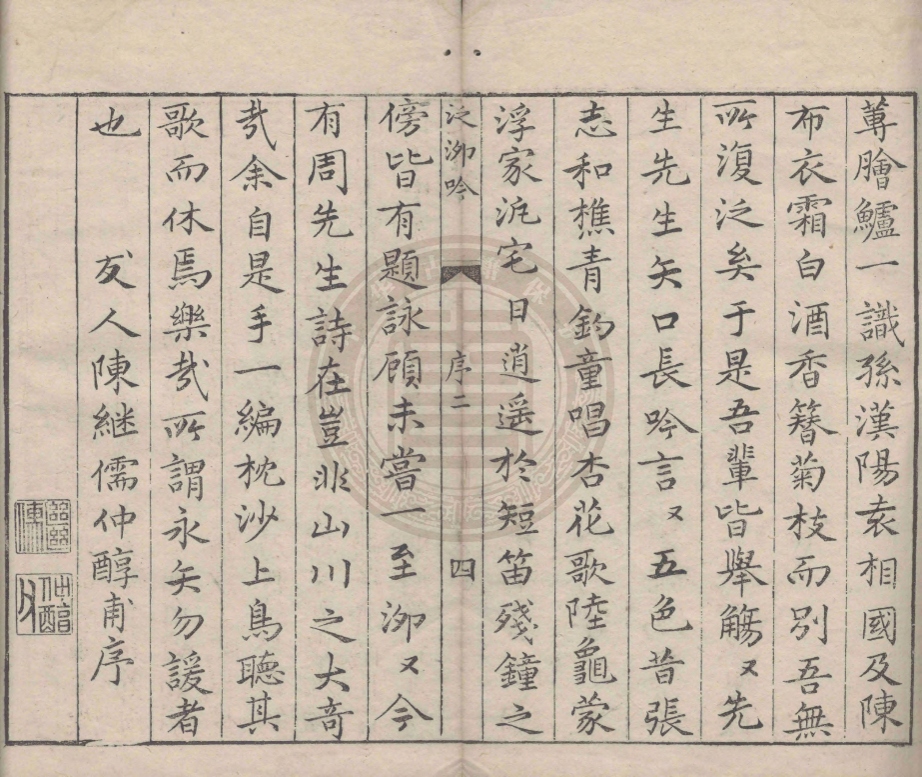 蓴膾鱸一識孫漢陽袁相國及陳
布衣霜白酒香簪菊枝而別吾無
所復泛矣于是吾輩皆舉觴〻先
生先生矢口長吟言〻五色昔張
志和樵青釣童唱杏花歌陸龜蒙
浮家泛宅日逍遥於短笛殘鐘之
泖吟
序二
四
傍皆有題詠顧未嘗一至泖〻今
有周先生詩在豈非山川之大奇
㢤余自是手一編枕沙上鳥聽其
歌而休焉樂㢤所謂永矢勿諼者
也
友人陳継儒仲醇甫序
仲醇